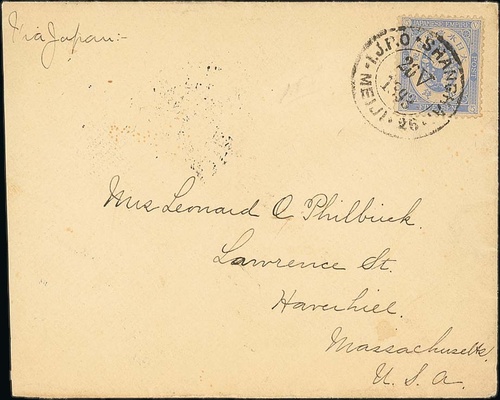 Via Japan:-
JAPANESE EMPIRE
POST
I.J.P.O · SHANGHAI
20 V
1893
MEIJI 26
Mrs Leonard C Philbrick.
Lawrence St.
Haverhill.
Massachusetts.
U. S. A.